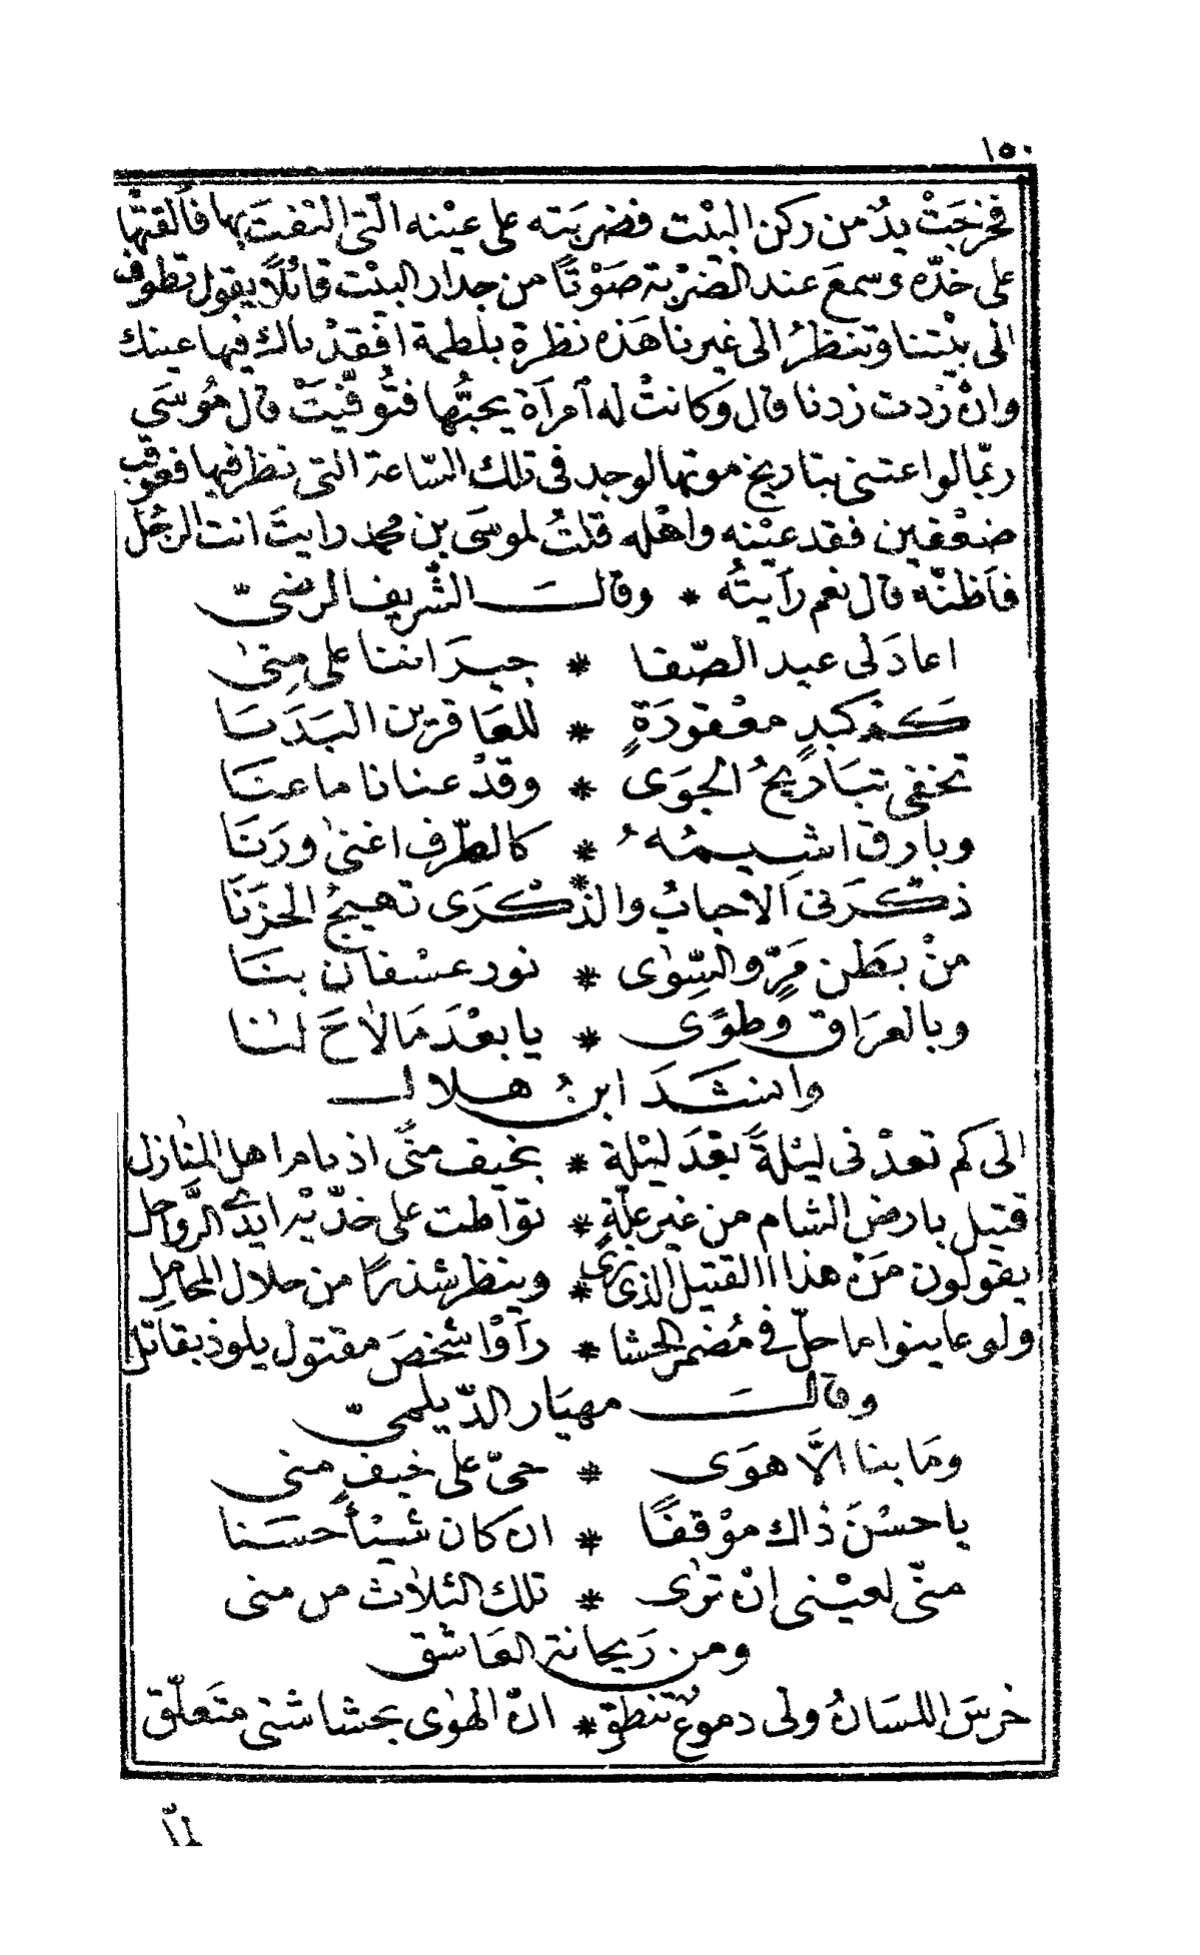 ١٥٠
فخرجَتْ يدٌ من ركن البيْت فضربَته على عيْنه الّتى التفتَ بها فألقتْها
على خدّه وسمعَ عند الضرْبة صَوْتًا من جدار البيْت قائلًا يقول تطوف
الى بيْتنا وتنظرُ الى غيرنا هَذه نظرة بلطمة افقدْناك فيها عينك
وانْ زدت زدنا قال وَكانتْ له آمرآة يحبُّها فتُوفّيَتْ قال مُوسَى
ربّما لو اعتنى بتاريخ موتها لوجد فى تلك السّاعة التى نظر فيها فعوقب
ضعْفين فقد عيْنه واهْله قلتُ لموسَى بن محمد رايتَ انت الرجُل
فآظنّه قال نعم رآيتُه * وقالَ الشّريف الرضىّ
اعادَ لى عيد الضّفا * جيرَاننا على مِنىٰ
كمْ كبدٍ معْقودَةٍ * للعَاقرين البَدَنَا
تخفى تبَاريحُ الجوَى * وقدْ عنانا ما عنَا
وبارق اشيمُهُ * كالطّرف اغنىٰ ورَنَا
ذكّرَنى الآحبابُ والذّ*كْرَى تهيجُ الحزَنَا
منْ بطن مَرٍّ والسّوٰى * نور عسْفان بنَا
وبالعرَاق وطوًى * يا بعْدَ مَا لاٰحَ لنٰا
وانشدَ ابنُ هلال
الى كم تعدْ فى ليْلةً بعْدَ ليْلة * بخيف منًى اذ نام اهل المنٰازل
قتيل بارض الشام من غير علّةٍ * تواطت على خدّيْه ايدى الرَّواحل
يقولون مَنْ هذا القتيل الذى نرَى * وينظر شذرًا من خلال المحامل
ولو عاينوا ما حلّ فى مُضمر الحشا * رآوْا شخصَ مقتول يلوذ بقاتل
وقالَ مهيَار الدّيلمىّ
ومَا بنا الاَّ هوَى * حىّ على خيفِ منى
يا حسْنَ ذٰاك موْقفًا * ان كان شيْئًا حسَنا
منّى لعيْنى انْ ترٰى * تلك الثلاٰث من منى
ومن رَيحانة العَاشق
خرسَ اللسَانُ ولى دموعٌ تنطق * انّ الهوٰى بحشاشتى متَعلّق
لمّا